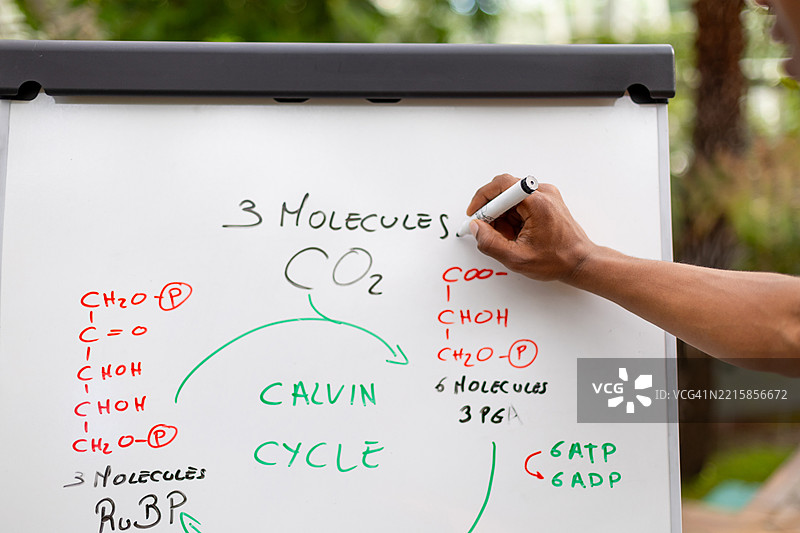 3 MOLECULES
CO₂
CH₂O-(P)
C=O
CHOH
CHOH
CH₂O-(P)
3 MOLECULES
RuBP
CALVIN
CYCLE
COO-
CHOH
CH₂O-(P)
6 MOLECULES
3PGA
6ATP
6ADP
VCG
ID: VCG41N2215856672